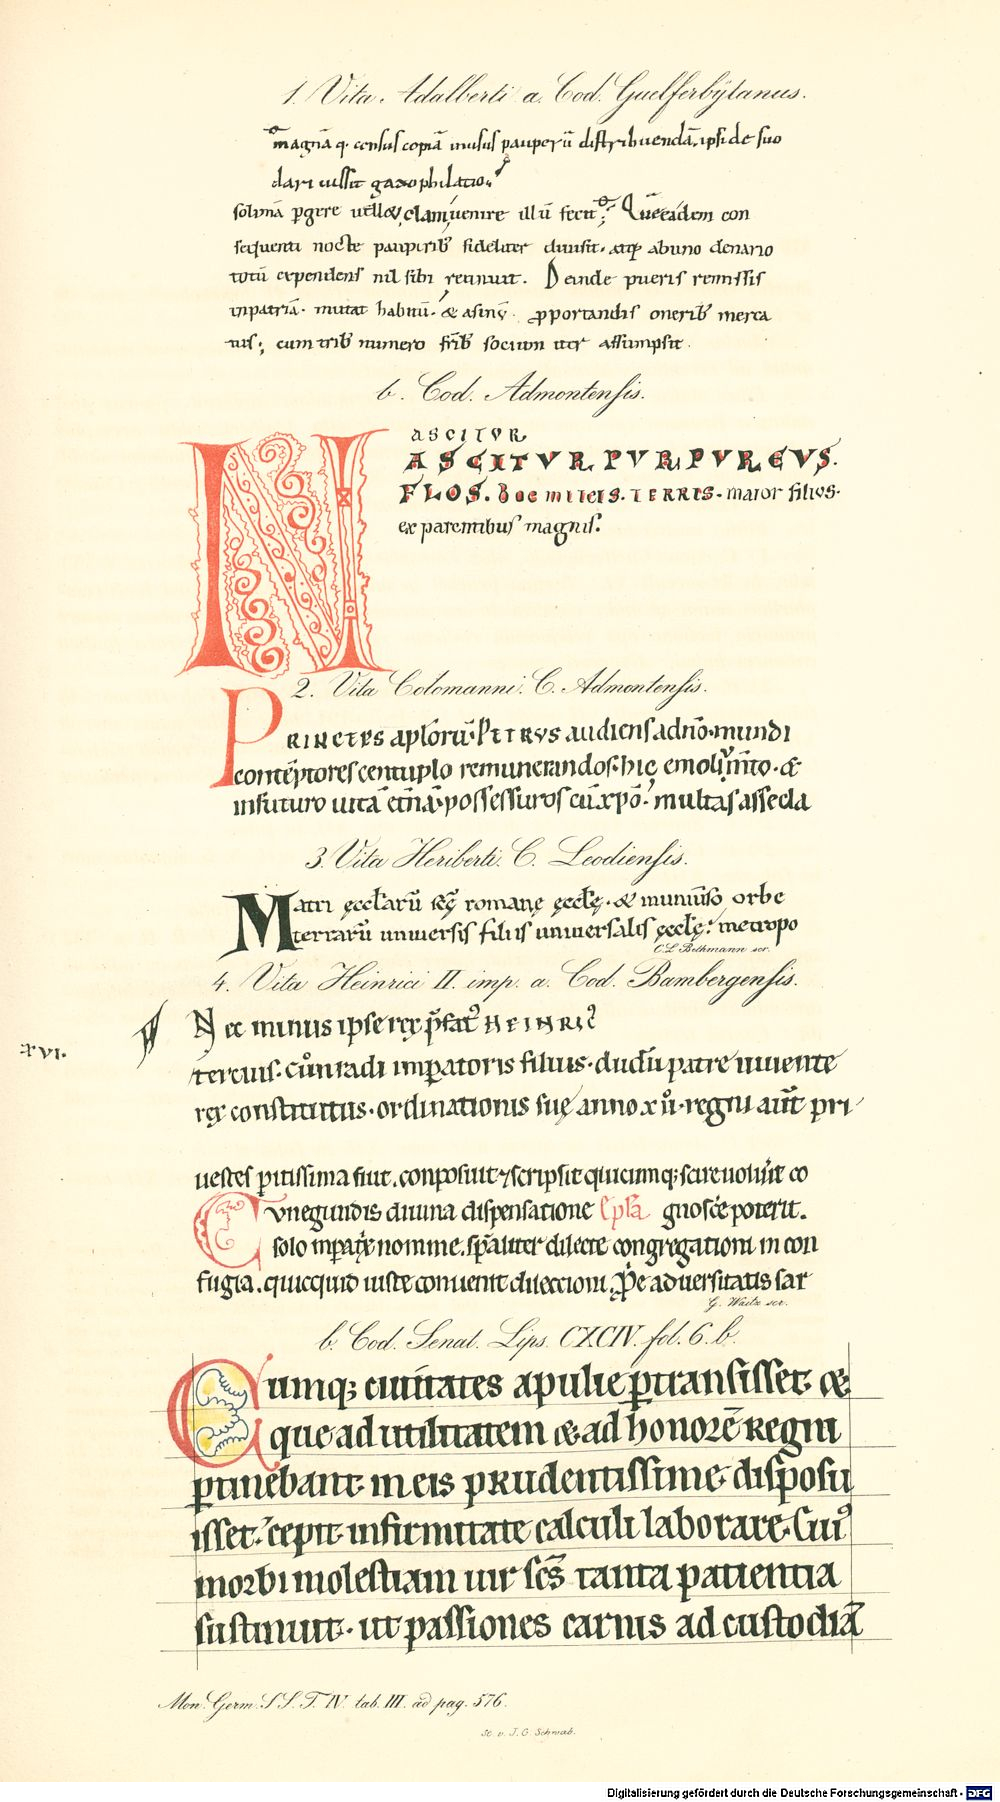 1. Vita Adalberti a. Cod. Guelferbytanus.
magnā q. census copiā inusus pauperū distribuendā. ipsi de suo
dari iussit gazophilatio.
solimā p̱gere uellet, clam uenire illū fecit; Que eadem con
sequenti nocte pauperib; fideliter diuisit. atq; ab uno denario
totū expendens nil sibi retinuit. Deinde pueris remissis
inpatriā. mutat habitū. & asinū portandis onerib; merca
tus; cum trib; numero frīb; socium iter assumpsit.
b. Cod. Admontensis.
ASCITVR
N ASCITVR PVRPVREVS.
FLOS. boemiicis. TERRIS. maior filius.
ex parentibus magnis.
2. Vita Colomanni. C. Admontensis.
PRINCEPS aplorū. PETRVS audiens a dño. mundi
contēptores centuplo remunerandos. hic emolimto. &
in futuro uitā etnā. possessuros cū xpō. multas assecla
3. Vita Heriberti. C. Leodiensis.
Matri ęccłarū scę romanę ęccłę. & in uniuso orbe
terrarū uniuersis filiis uniuersalis ęccłę. metropo
C. L. Bethmann scr.
4. Vita Heinrici II. imp. a. Cod. Bambergensis.
Nec minus ipse rex p̄fat᾿ HEINRIC᾿
xvi.
tercius. cůnradi imꝑatoris filius. dudū patre uiuente
rex constitutus. ordinationis suę anno x ů. regni aut̄ pri
uestes ꝑitissima fuit. conposuit ⁊ scripsit quicumq; scire uolůit co
Cvnegundis diuina dispensatione Epl̄a gnosc̄e poterit.
solo inꝑat̄x nomine. sp̄aliter dilecte congregationi in con
fugia. quicquid iuste conuenit dilectioni. P̄e aduersitatis sar
G. Waitz scr.
b. Cod. Senat. Lips. CXCIV. fol. 6. b.
Cumq; ciuitates apulie ꝑtransisset. &
que ad utilitatem & ad honorē regni
ꝑtinebant. in eis prudentissime disposu
isset. cepit infirmitate calculi laborare. Cui᾿
morbi molestiam uir scs̄ tanta patientia
sustinuit. ut passiones carnis ad custodiā
Mon. Germ. SS. T. IV. tab. III. ad pag. 576.
sc. v. J. G. Schwab.
Digitalisierung gefördert durch die Deutsche Forschungsgemeinschaft - DFG